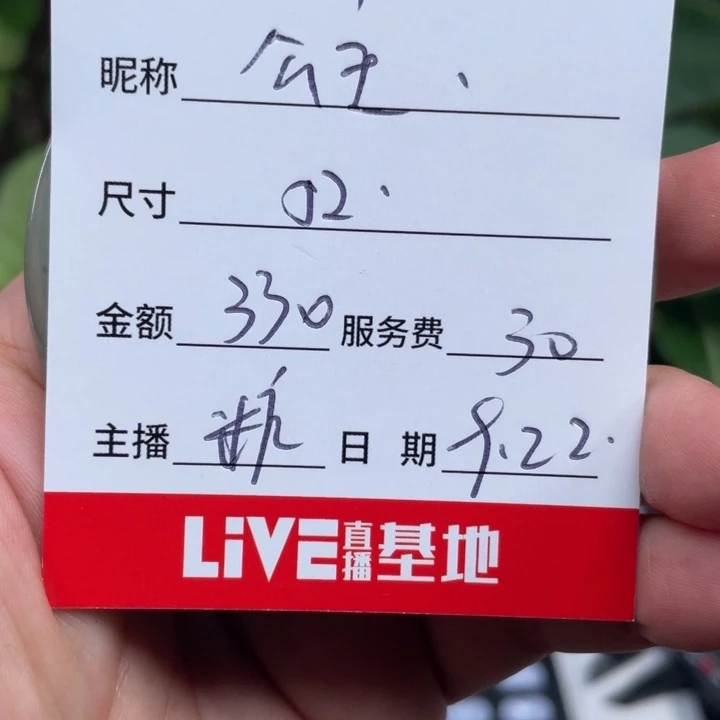 昵称
尺寸 02.
金额 330 服务费 30
主播 日期 9.22.
LiVE直播基地